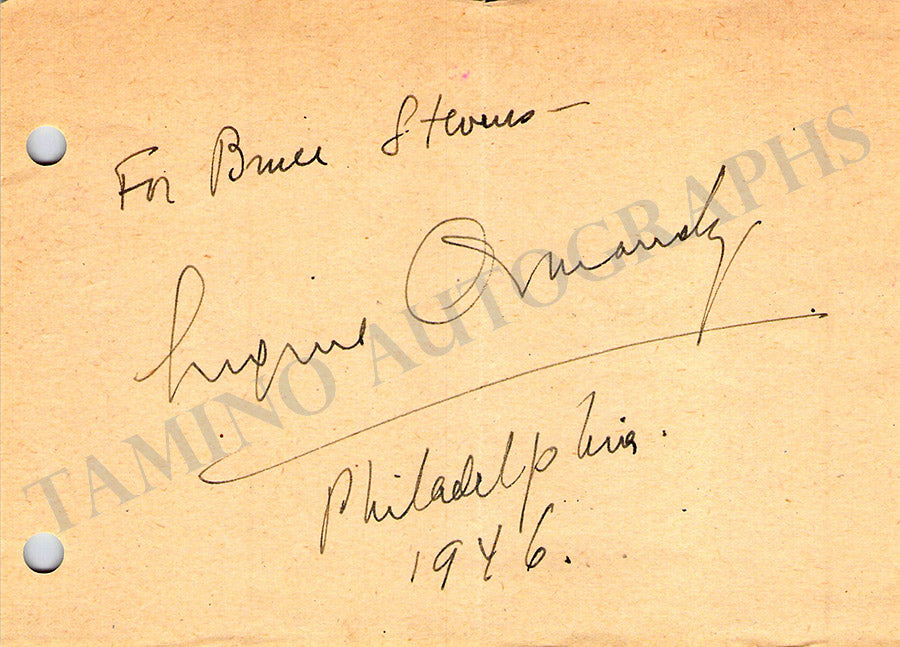 For Bruce Stevens —
Eugene Ormandy
Philadelphia.
1946.
TAMINO AUTOGRAPHS